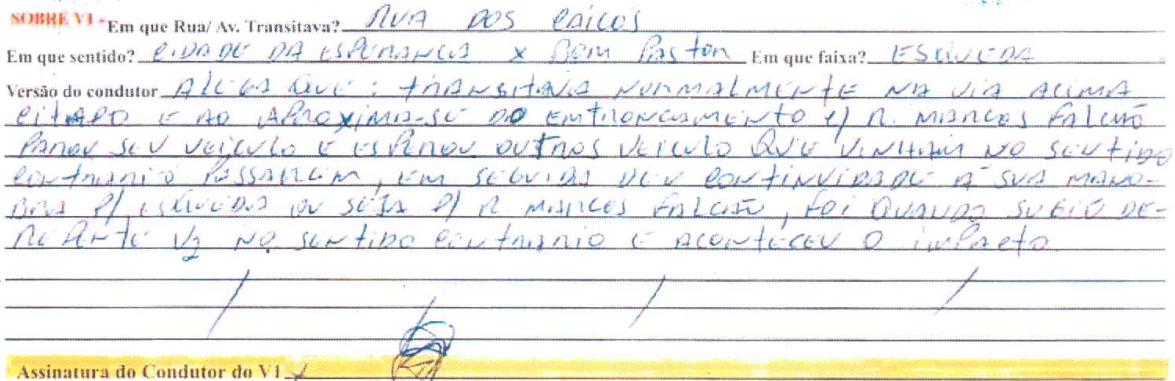 SOBRE V1 - Em que Rua/ Av. Transitava? RUA DOS CAICOS
Em que sentido? CIDADE DA ESPERANCA X BOM PASTOR Em que faixa? ESQUEDA
Versão do condutor ALEGA QUE: TRANSITAVA NORMALMENTE NA VIA ACIMA
CITADO E AO APROXIMA-SE DO EMTRONCAMENTO C/ R. MARCOS FALCÃO
PAROU SEU VEICULO E ESPEROU OUTROS VEICULO QUE VINHAM NO SENTIDO
CONTRARIO PASSAREM, EM SEGUIDA DEU CONTINUIDADE A SUA MANO-
BRA P/ ESQUEDA OU SEJA P/ R MARCOS FALCÃO, FOI QUANDO SUGIO DE-
REPENTE V2 NO SENTIDO CONTRARIO E ACONTECEU O IMPACTO
Assinatura do Condutor do V1 x